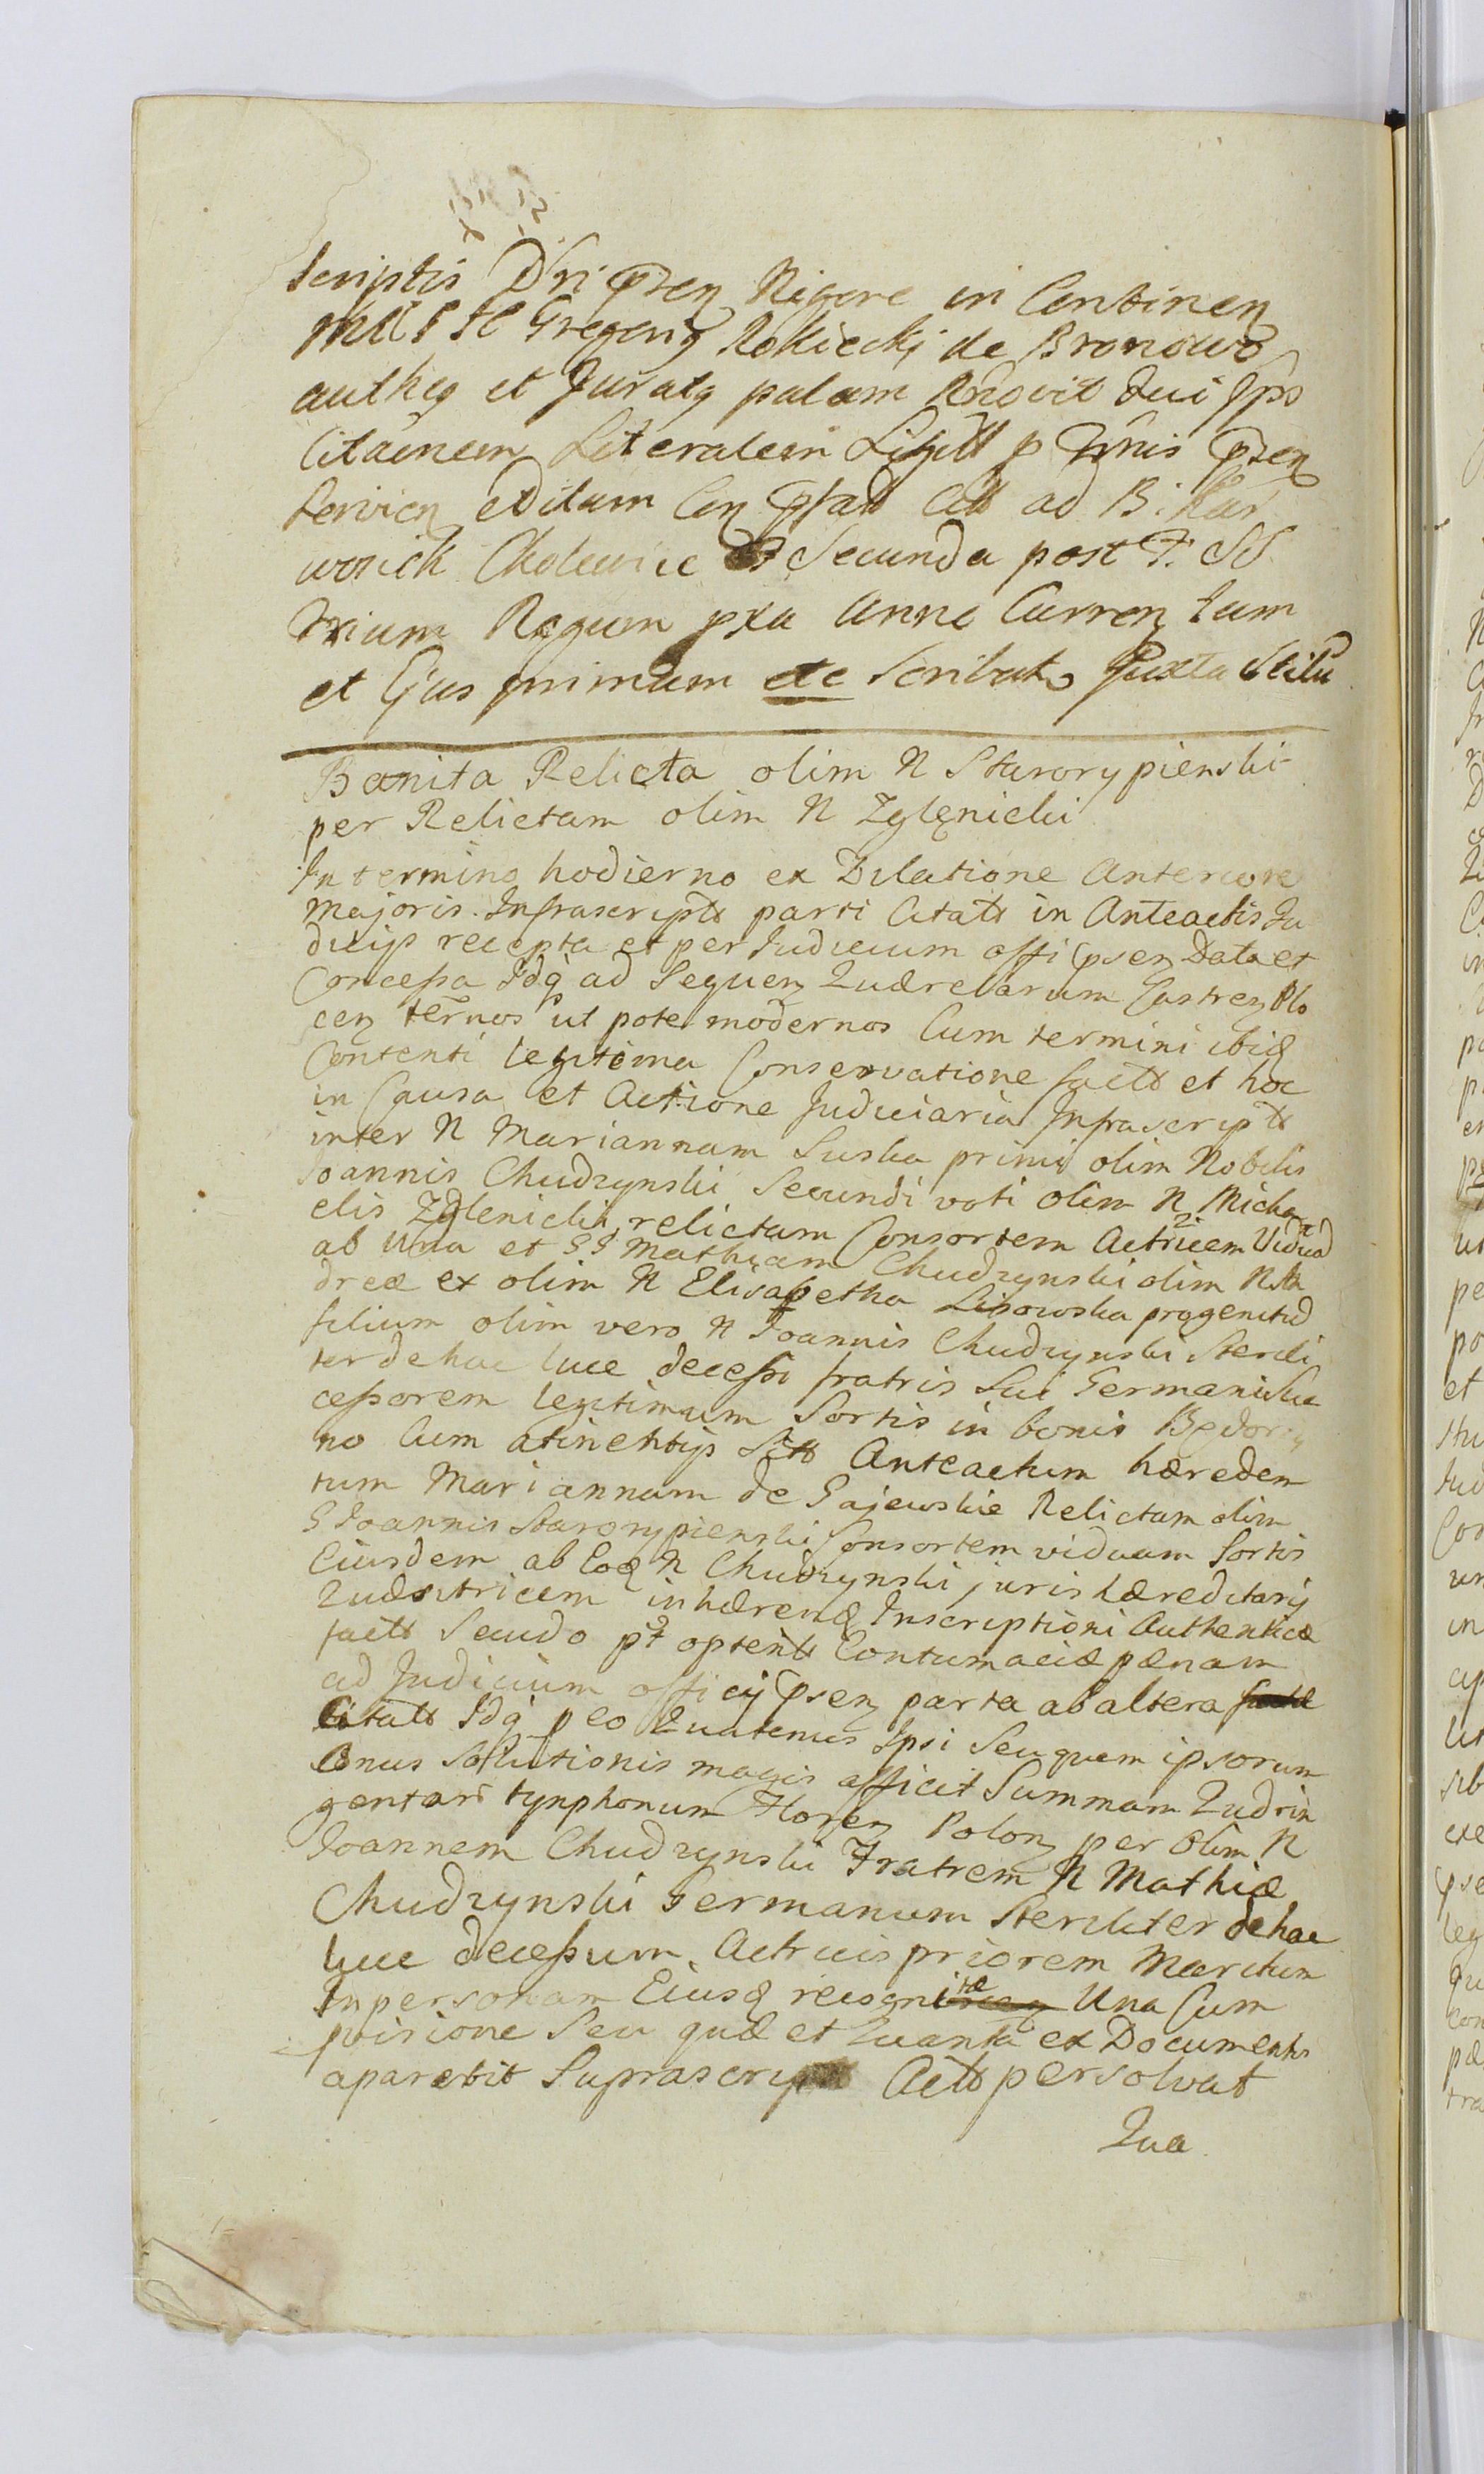 scriptis Dni Psen Rigore in Continen
Mtt S H Gregorig Rokiecki de Bronowo
autheg et Juratg palam Rnovit Sui Ipso
Citaonem Literalem Ligitt p Tmis Psen
servien editam Con Psatt Citt ad B. Kar
wosiek Cholewice F. Secunda post F. SS
Trium Regum pxa Anni Curren tum
et Ejus primum etc Scribat Juxta Stilu
Banita Relicta olim N Starorypienski
per Relictam olim N Zglęnicki
In termino hodierno ex Dilatione Anteriore
Majoris Infrascriptt parti Citatt in Anteactis Ju
dicijs recepta et per Judicium offi Psen Data et
Concessa Idq ad Sequen Quærelarum Castren Plo
cen terños ut pote modernos Cum termini ibiq
Contenti legitima Conservatione factt et hoc
in Causa et Actione Judiciaria Infrascriptt
inter N Mariannam Suska primi olim Nobilis
Joannis Chudzynski Secundi voti olim N Micha
elis Zglenicki relictam Consortem Actricem Viduā
ab Una et G Mathiam Chudzynski olim N An
dreæ ex olim N Elisabetha Lisowska progenitū
filium olim vero N Joannis Chudzynski Sterili
ter de hac luce decessi fratris Sui Germani Suc
cessorem legitimum Sortis in bonis
no Cum atinentijs Sitt Anteactum hæredem
tum Mariannam de Gajewskie Relictam olim
G Joannis Starorypienski Consortem viduam Sortis
Eiusdem ab Eoq N Chudzynski juris hæreditarij
Quæsitricem inhærenq Inscriptioni Authenticæ
factt Secudo pt optentt Contumaciæ pænam
ad Judicium officij Psen parta ab altera
Citatt Idq p eo Quatenus Ipsi Seu quem ipsorum
Onus Solutionis magis afficit Summam Quadrin
gentarū tynphonum Floren Polon per Olim N
Joannem Chudzynski Fratrem N Mathiæ
Chudzynski Germanum Steriliter de hac
luce decessum Actricis priorem Maritum
In personam Eiusq recognitæ Una Cum
pvisione Seu quæ et Quanta ex Documentis
aparebit Suprascrip Actt persolvat
Qua